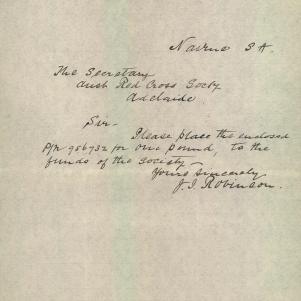 Nairne S A.
The Secretary
Aust Red Cross Socty
Adelaide.
Sir-
Please place the enclosed
P/N 956732 for one pound, to the
funds of the Society -
Yours Sincerely
J. I. Robinson.